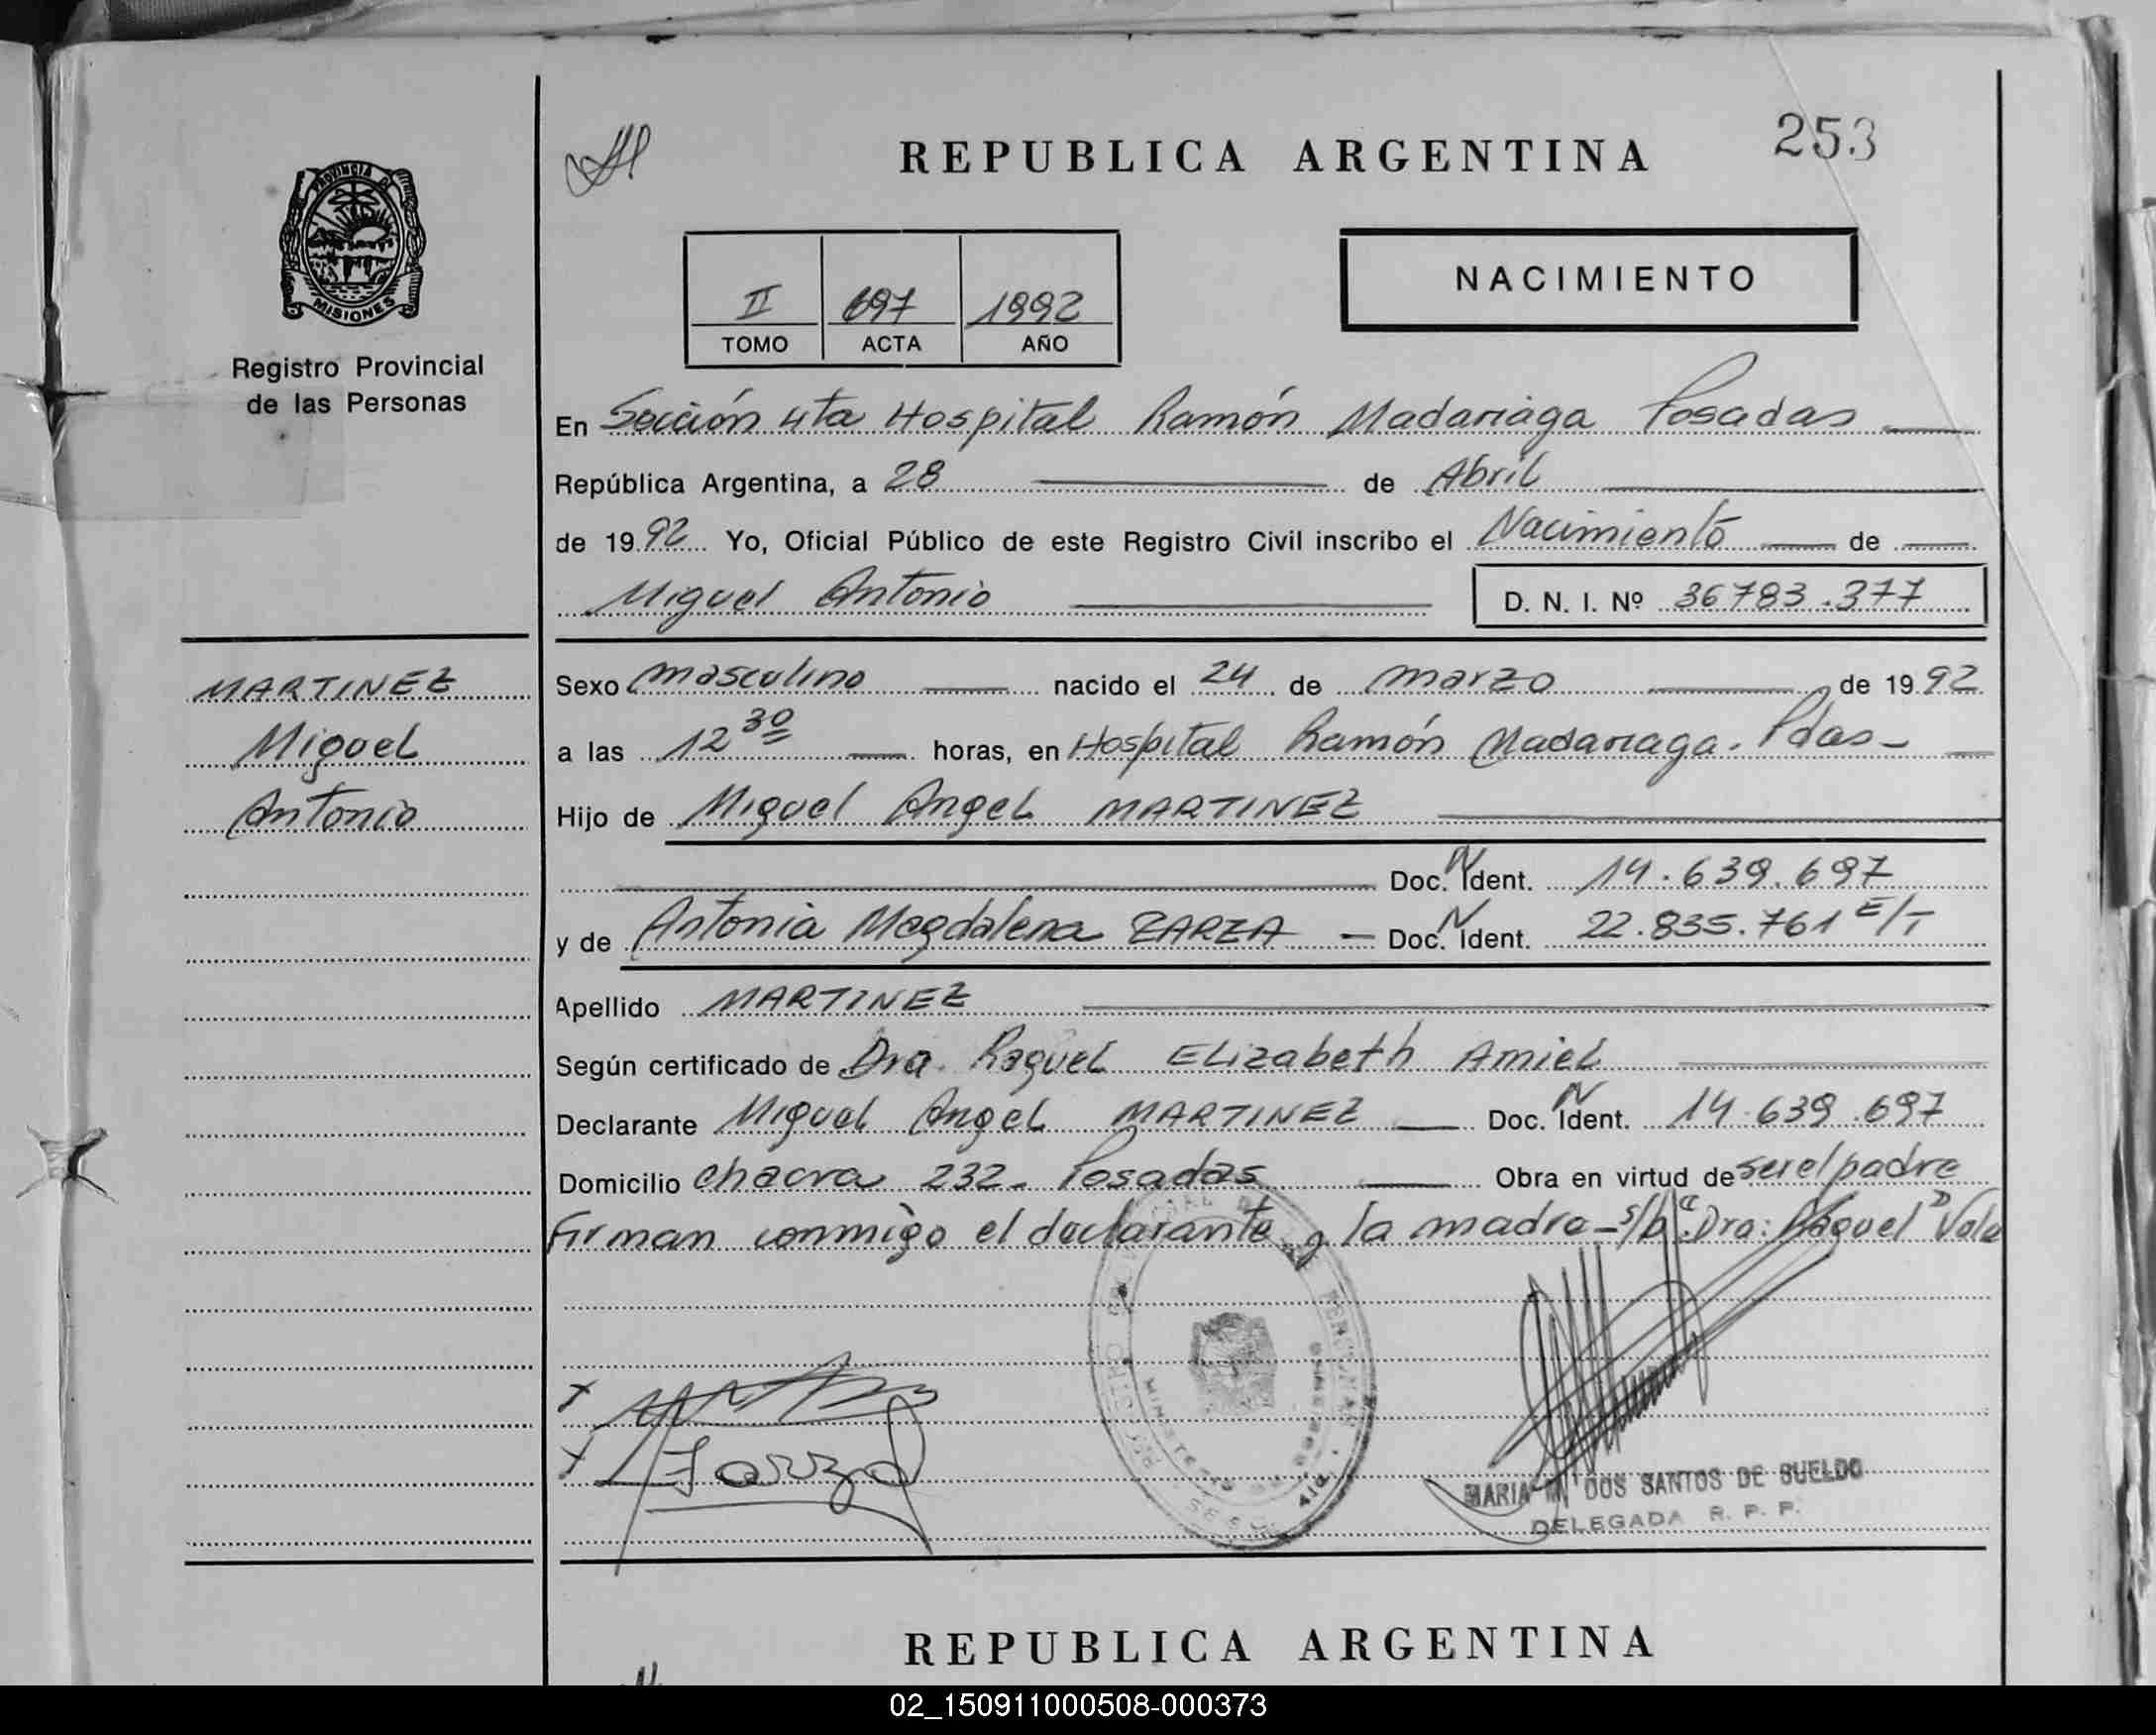 REPUBLICA ARGENTINA
253
PROVINCIA DE
MISIONES
Registro Provincial
de las Personas
II 697 1992
TOMO ACTA AÑO
NACIMIENTO
En Sección 4ta Hospital Ramón Madariaga Posadas
República Argentina, a 28 de Abril
de 1992 Yo, Oficial Público de este Registro Civil inscribo el Nacimiento de
Miguel Antonio D. N. I. Nº 36783.377
MARTINEZ
Miguel
Antonio
Sexo masculino nacido el 24 de marzo de 1992
a las 12 30 horas, en Hospital Ramón Madariaga. Pdas-
Hijo de Miguel Angel MARTINEZ
Doc. N Ident. 14.639.697
y de Antonia Magdalena ZARZA - Doc. N Ident. 22.835.761 E/T
Apellido MARTINEZ
Según certificado de Dra. Raquel Elizabeth Amiel
Declarante Miguel Angel MARTINEZ Doc. N Ident. 14.639.697
Domicilio chacra 232- Posadas Obra en virtud de ser el padre
Firman conmigo el declarante y la madre - s/b Dra: Raquel Vale
Zarza
MARIA M. DOS SANTOS DE SUELDO
DELEGADA R. P. P.
REPUBLICA ARGENTINA
02_150911000508-000373